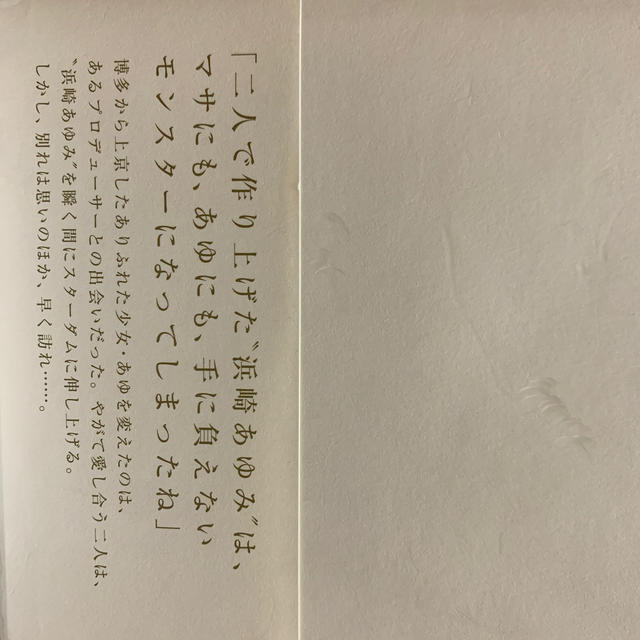 「二人で作り上げた〝浜崎あゆみ〟は、
マサにも、あゆにも、手に負えない
モンスターになってしまったね」
博多から上京したありふれた少女・あゆを変えたのは、
あるプロデューサーとの出会いだった。やがて愛し合う二人は、
〝浜崎あゆみ〟を瞬く間にスターダムに伸し上げる。
しかし、別れは思いのほか、早く訪れ……。